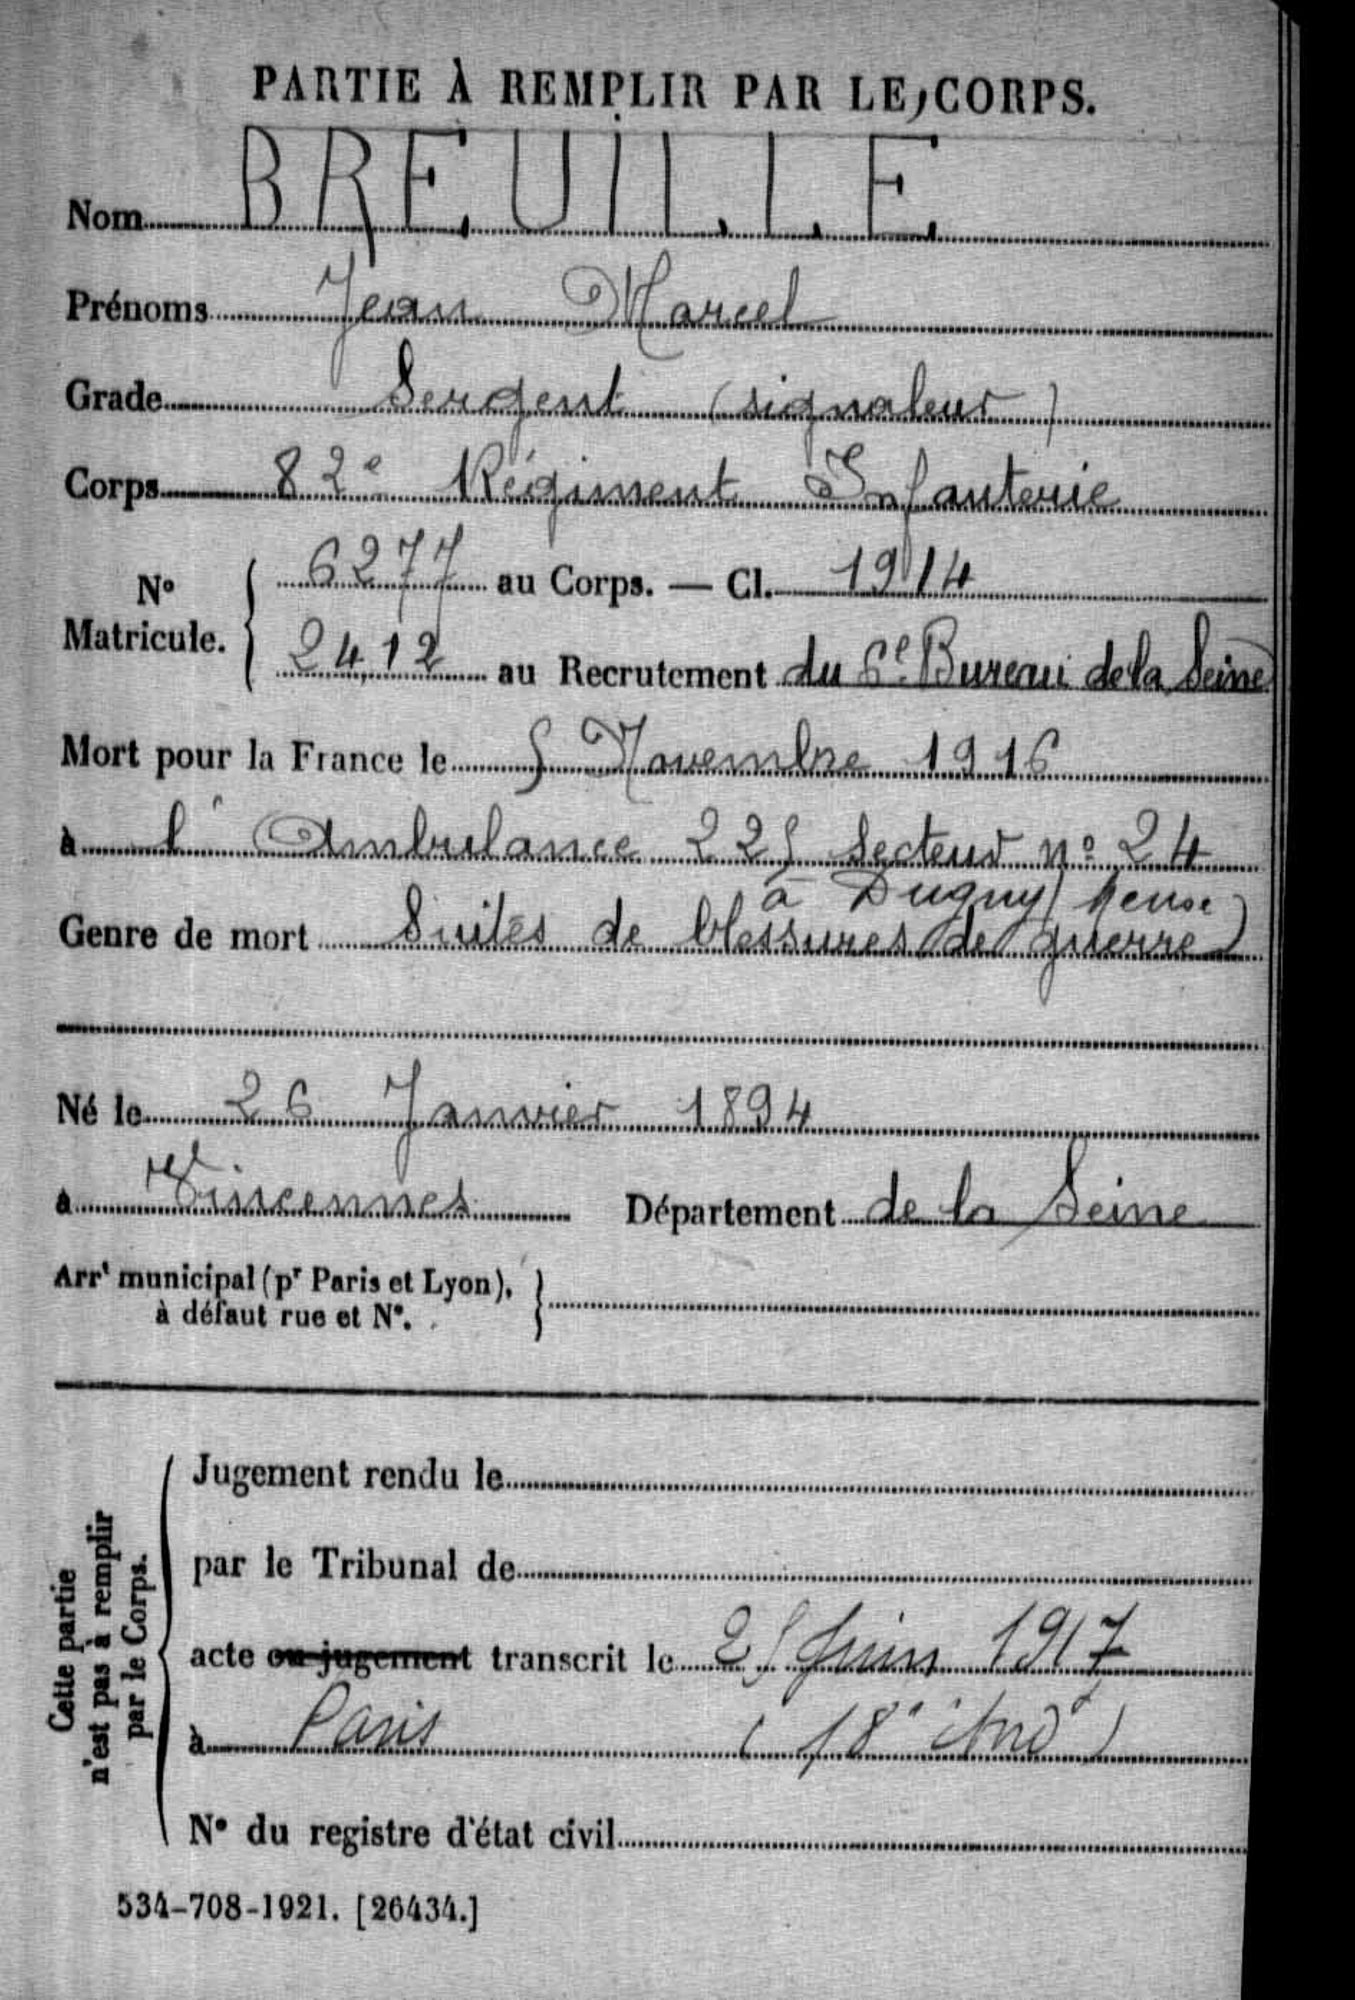 PARTIE À REMPLIR PAR LE CORPS.
Nom BREUILLE
Prénoms Jean Marcel
Grade Sergent (signaleur)
Corps 82e Régiment Infanterie
N° Matricule. { 6277 au Corps. — Cl. 1914
2412 au Recrutement du 6e Bureau de la Seine
Mort pour la France le 5 Novembre 1916
à l'Ambulance 225 Secteur n° 24
à Dugny (Meuse)
Genre de mort Suites de blessures de guerre
Né le 26 Janvier 1894
à Vincennes Département de la Seine
Arrt municipal (pr Paris et Lyon), à défaut rue et N°. }
Cette partie n'est pas à remplir par le Corps.
Jugement rendu le
par le Tribunal de
acte ou jugement transcrit le 25 Juin 1917
à Paris (18e Arrdt)
N° du registre d'état civil
534-708-1921. [26434.]